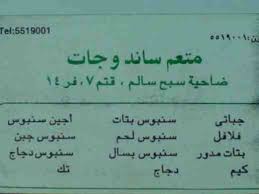 Tel:5519001 ٥٥١٩٠٠١
متعم ساند وجات
ضاحية سبح سالم، قتم ٧، فر ١٤
جباتى سنبوس بتات اجبن سنبوس
فلافل سنبوس لحم سنبوس جبن
بتات مدور سنبوس بسال سنبوس دجاج
كيم دجاج تك